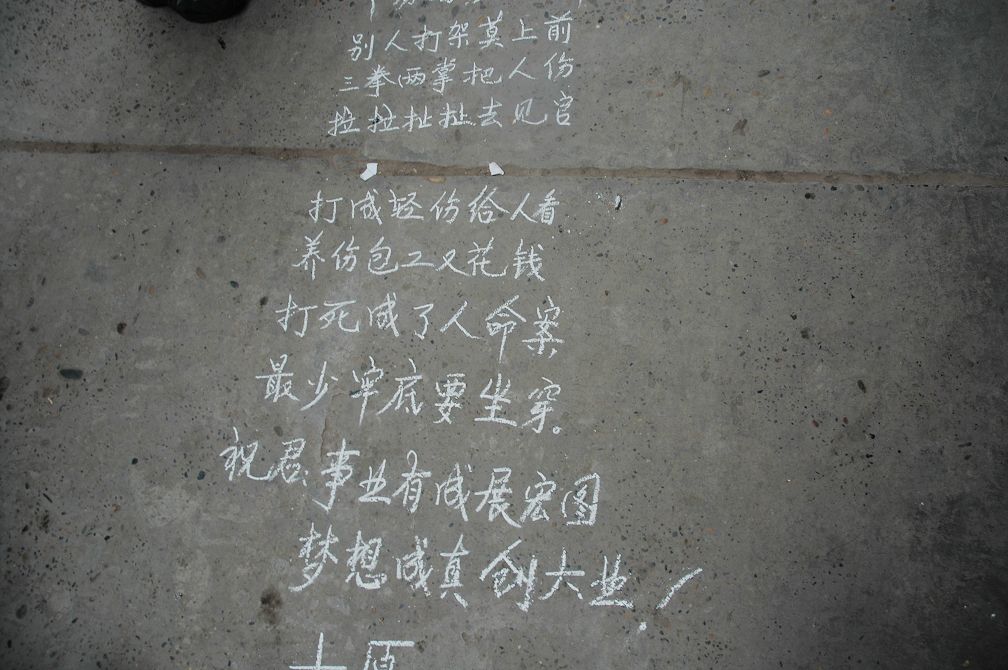 别人打架莫上前
三拳两掌把人伤
拉拉扯扯去见官
打成轻伤给人看
养伤包工又花钱
打死成了人命案
最少牢底要坐穿。
祝君事业有成展宏图
梦想成真创大业！